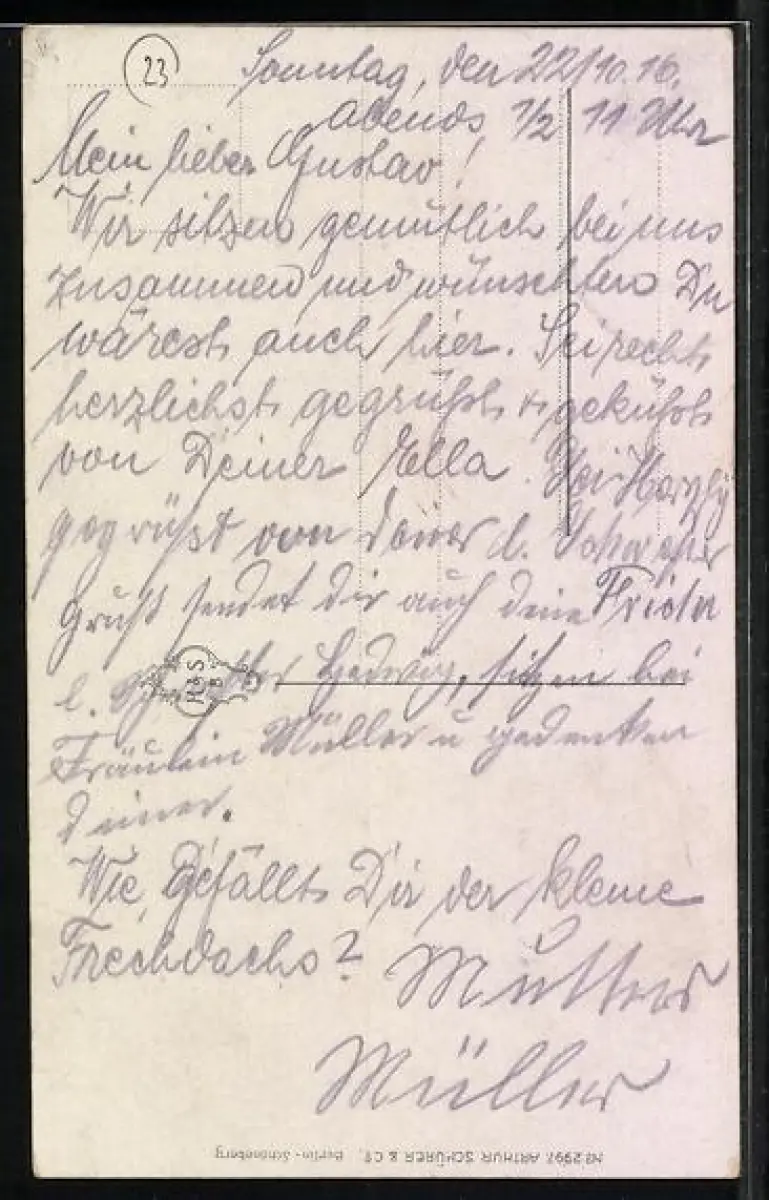 23
Sonntag, den 22/10.16.
abends 1/2 11 Uhr
Mein lieber Gustav!
Wir sitzen gemütlich bei uns
zusammen und wünschten Du
wärest auch hier. Sei recht
herzlichst gegrüßt & geküßt
von Deiner Ella. Sei
gegrüßt von deiner l.
Gruß sendet dir auch deine Frieda
l. Hedwig, sitzen bei
H&S
B
Fräulein Müller u gedenken
deiner.
Wie gefällt Dir der kleine
Frechdachs? Mutter
Müller
No 2997. ARTHUR SCHÜRER & Co., Berlin-Schöneberg